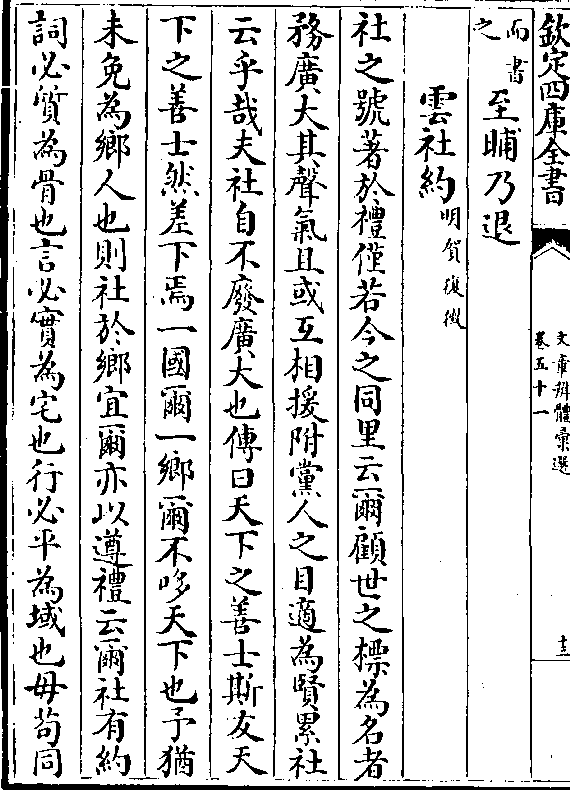 欽定四庫全書
文章辨體彙選
卷五十一
十三
而書之至晡乃退
雲社約明賀復徴
社之號著於禮僅若今之同里云爾顧世之標為名者
務廣大其聲氣且或互相援附黨人之目適為賢累社
云乎哉夫社自不廢廣大也傳曰天下之善士斯友天
下之善士然差下焉一國爾一鄉爾不哆天下也予猶
未免為鄉人也則社於鄉宜爾亦以遵禮云爾社有約
詞必質為骨也言必實為宅也行必平為域也毋苟同